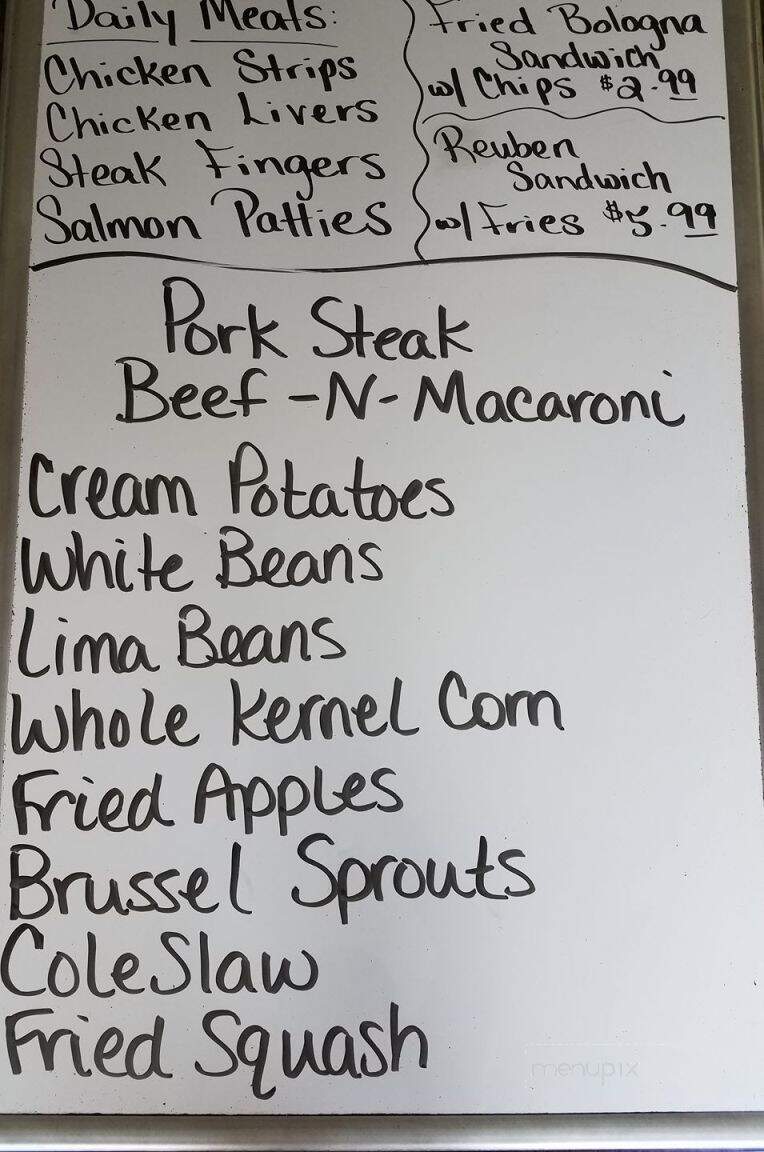 Daily Meats:
Chicken Strips
Chicken Livers
Steak Fingers
Salmon Patties
Fried Bologna
Sandwich
w/ Chips $2.99
Reuben
Sandwich
w/ Fries $5.99
Pork Steak
Beef -N- Macaroni
Cream Potatoes
White Beans
Lima Beans
Whole Kernel Corn
Fried Apples
Brussel Sprouts
ColeSlaw
Fried Squash
menupix